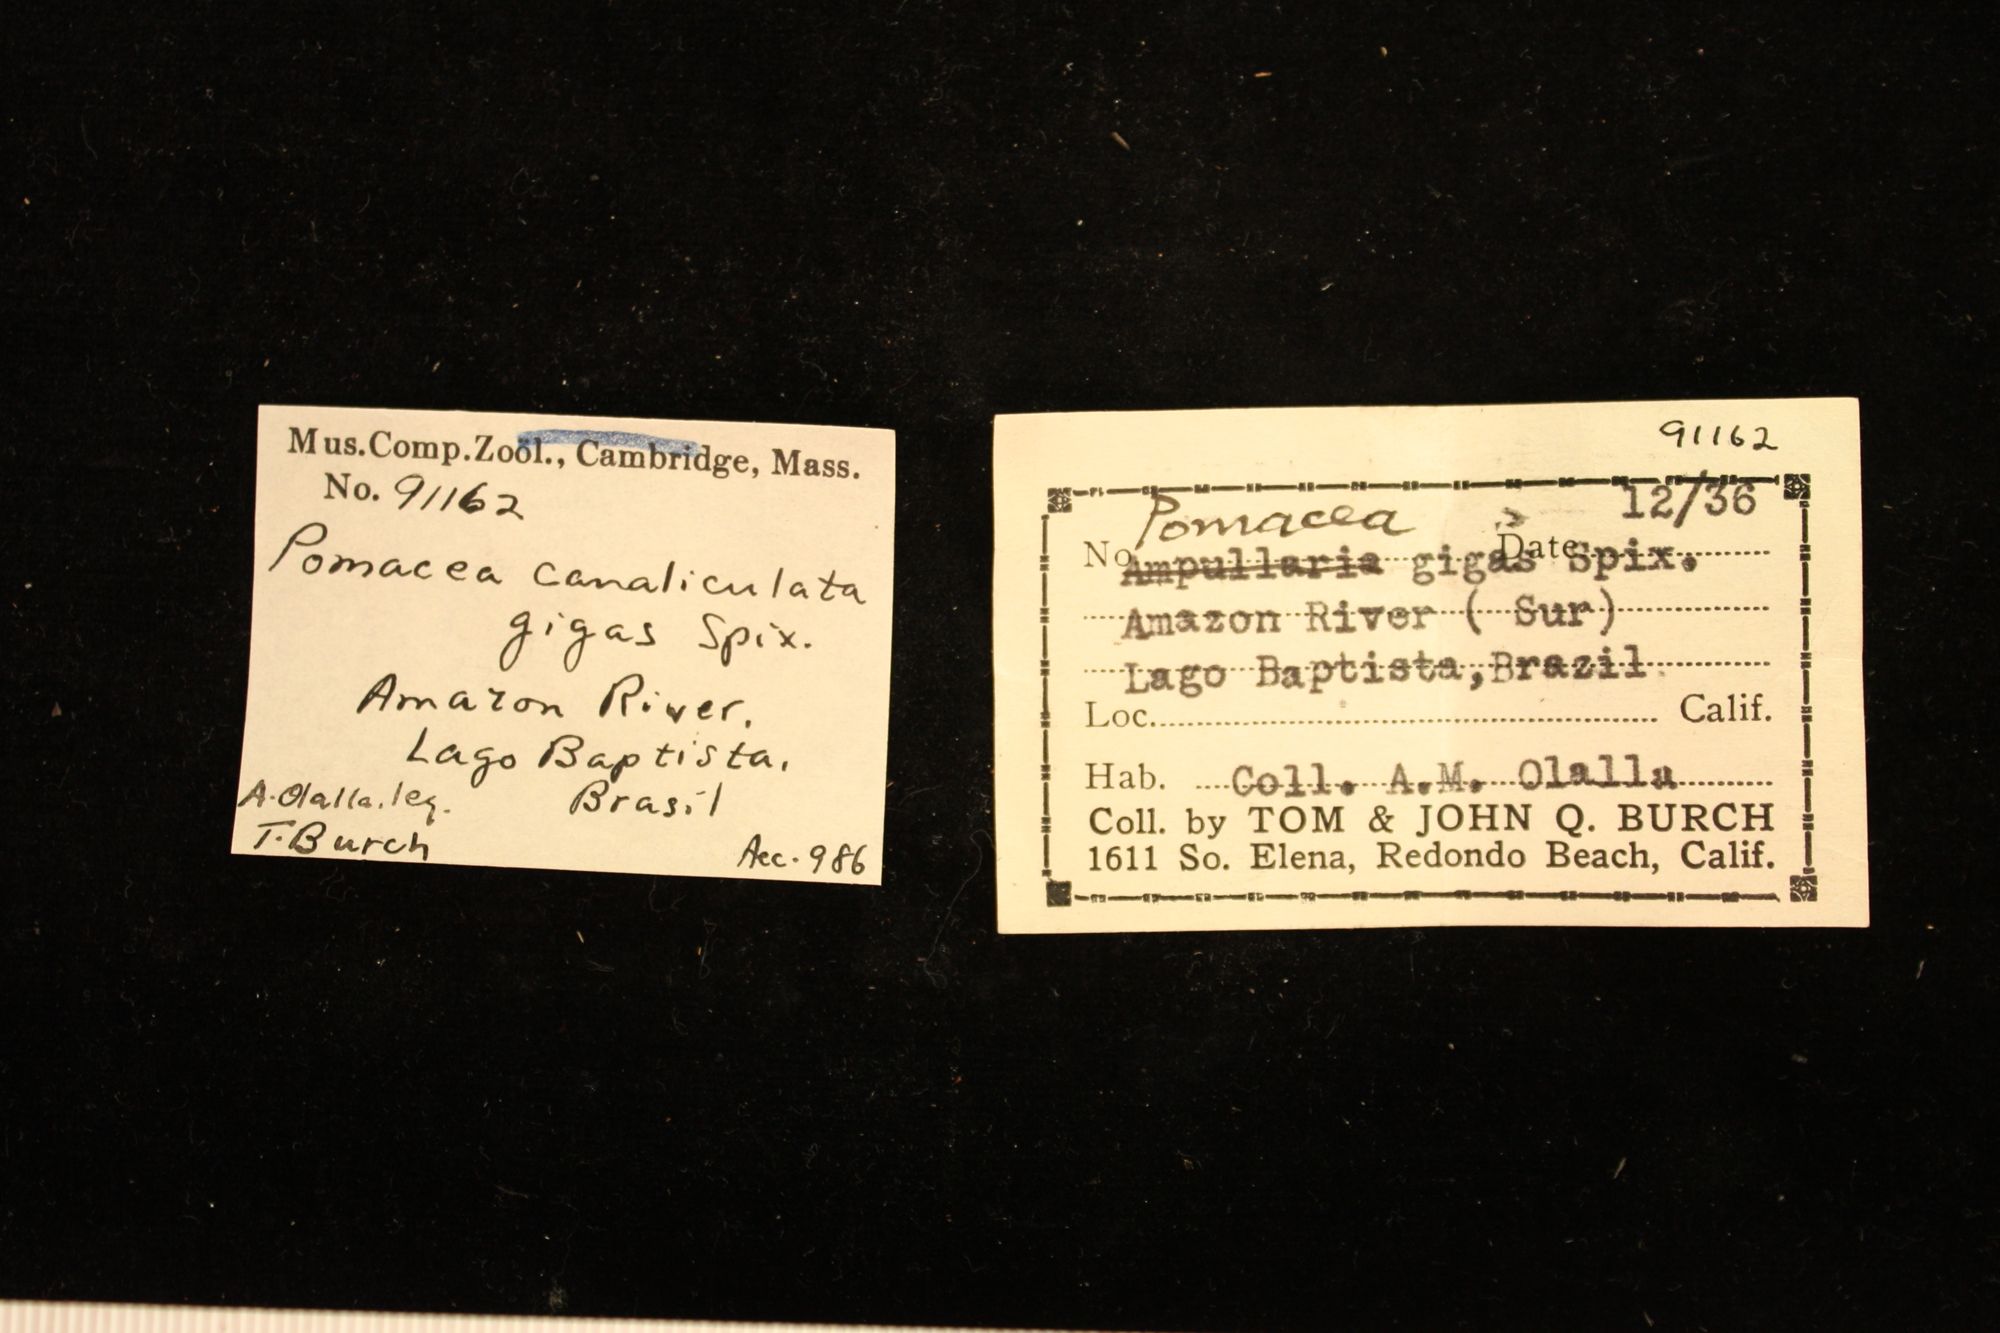 Mus.Comp.Zoöl., Cambridge, Mass.
No. 91162
Pomacea canaliculata
gigas Spix.
Amazon River,
Lago Baptista,
Brasil
A. Olalla. leg.
T. Burch
Acc. 986
91162
12/36
Pomacea
No. Ampullaria gigas Spix. Date
Amazon River ( Sur)
Lago Baptista,Brazil
Loc. Calif.
Hab. Coll. A.M. Olalla
Coll. by TOM & JOHN Q. BURCH
1611 So. Elena, Redondo Beach, Calif.